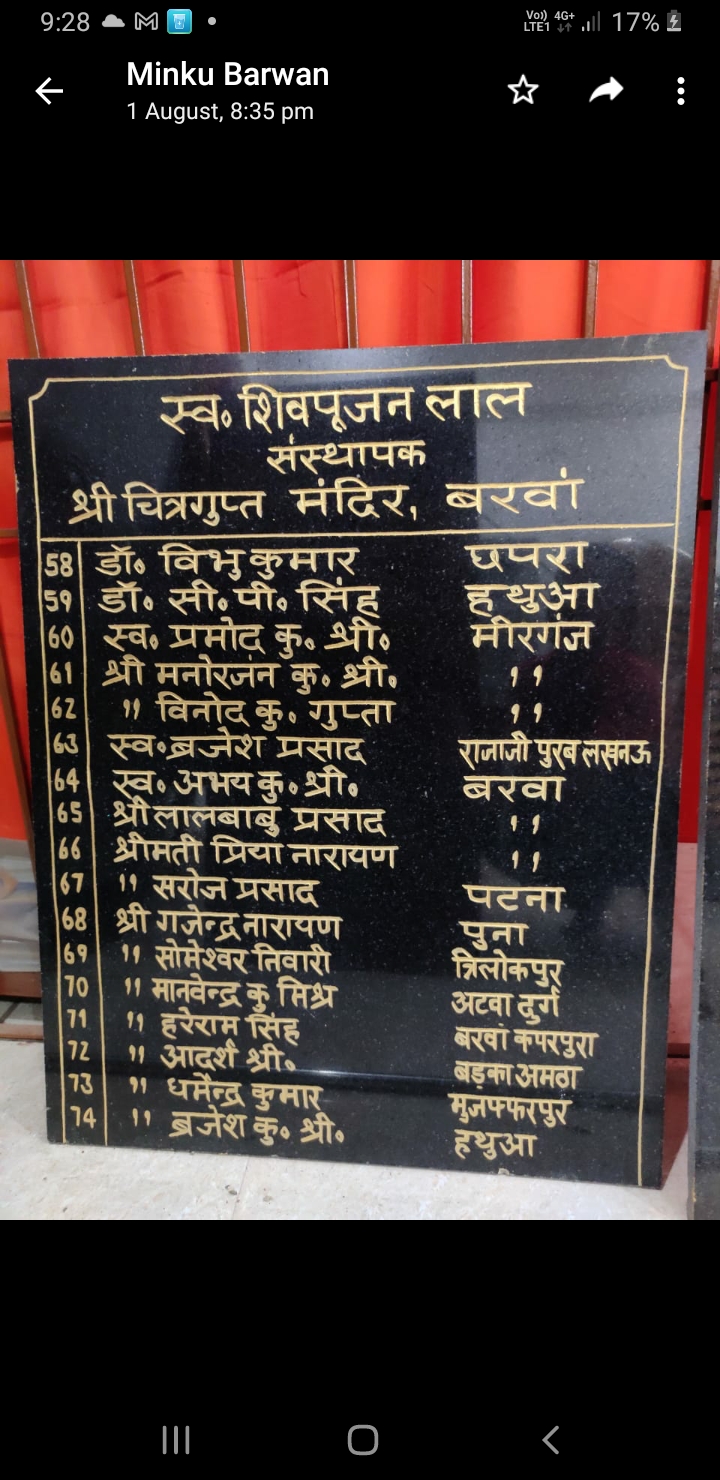 9:28 Vo)) 4G+ LTE1 17%
Minku Barwan
1 August, 8:35 pm
स्व॰ शिवपूजन लाल
संस्थापक
श्री चित्रगुप्त मंदिर, बरवां
58 डॉ॰ विभु कुमार छपरा
59 डॉ॰ सी॰ पी॰ सिंह हथुआ
60 स्व॰ प्रमोद कु॰ श्री॰ मीरगंज
61 श्री मनोरजंन कु॰ श्री॰ ,,
62 " विनोद कु॰ गुप्ता ,,
63 स्व॰ ब्रजेश प्रसाद राजाजी पुरब लखनऊ
64 स्व॰ अभय कु॰ श्री॰ बरवा
65 श्री लालबाबु प्रसाद ,,
66 श्रीमती प्रिया नारायण ,,
67 " सरोज प्रसाद पटना
68 श्री गजेन्द्र नारायण पुना
69 " सोमेश्वर तिवारी त्रिलोकपुर
70 " मानवेन्द्र कु मिश्र अटवा दुर्ग
71 " हरेराम सिंह बरवां कपरपुरा
72 " आदर्श श्री॰ बड़का अमठा
73 " धर्मेन्द्र कुमार मुजफ्फरपुर
74 " ब्रजेश कु॰ श्री॰ हथुआ